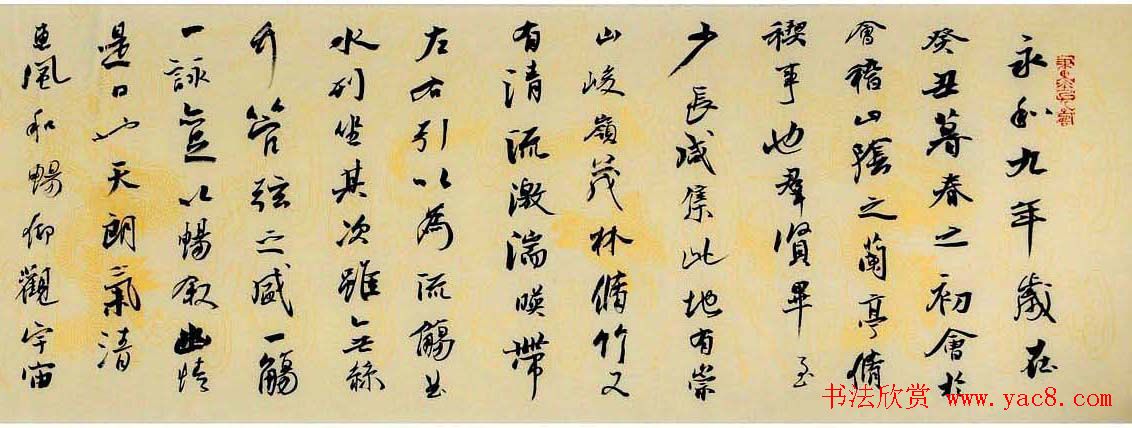 永和九年歲在
癸丑暮春之初會於
會稽山陰之蘭亭脩
禊事也羣賢畢至
少長咸集此地有崇
山峻嶺茂林脩竹又
有清流激湍暎帶
左右引以為流觴曲
水列坐其次雖無絲
竹管弦之盛一觴
一詠亦足以暢叙幽情
是日也天朗氣清
惠風和暢仰觀宇宙
书法欣赏 www.yac8.com